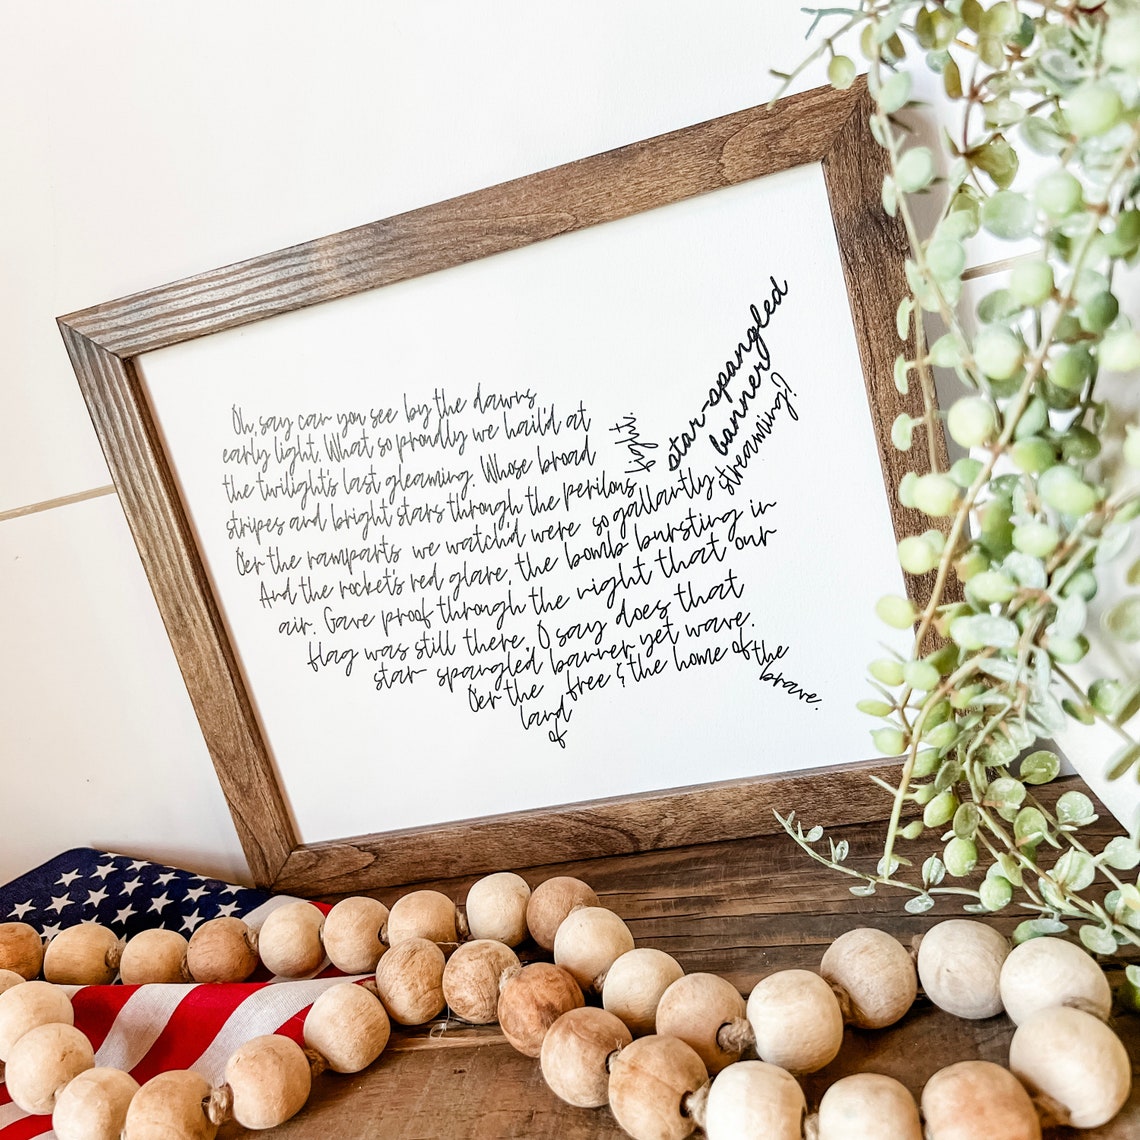 Oh, say can you see by the dawns
early light. What so proudly we hail'd at
the twilight's last gleaming. Whose broad
stripes and bright stars through the perilous fight.
O'er the ramparts we watch'd were so gallantly streaming?
And the rocket's red glare, the bomb bursting in
air. Gave proof through the night that our
flag was still there, O say does that
star-spangled banner
star-spangled banner yet wave.
O'er the land of free & the home of the brave.